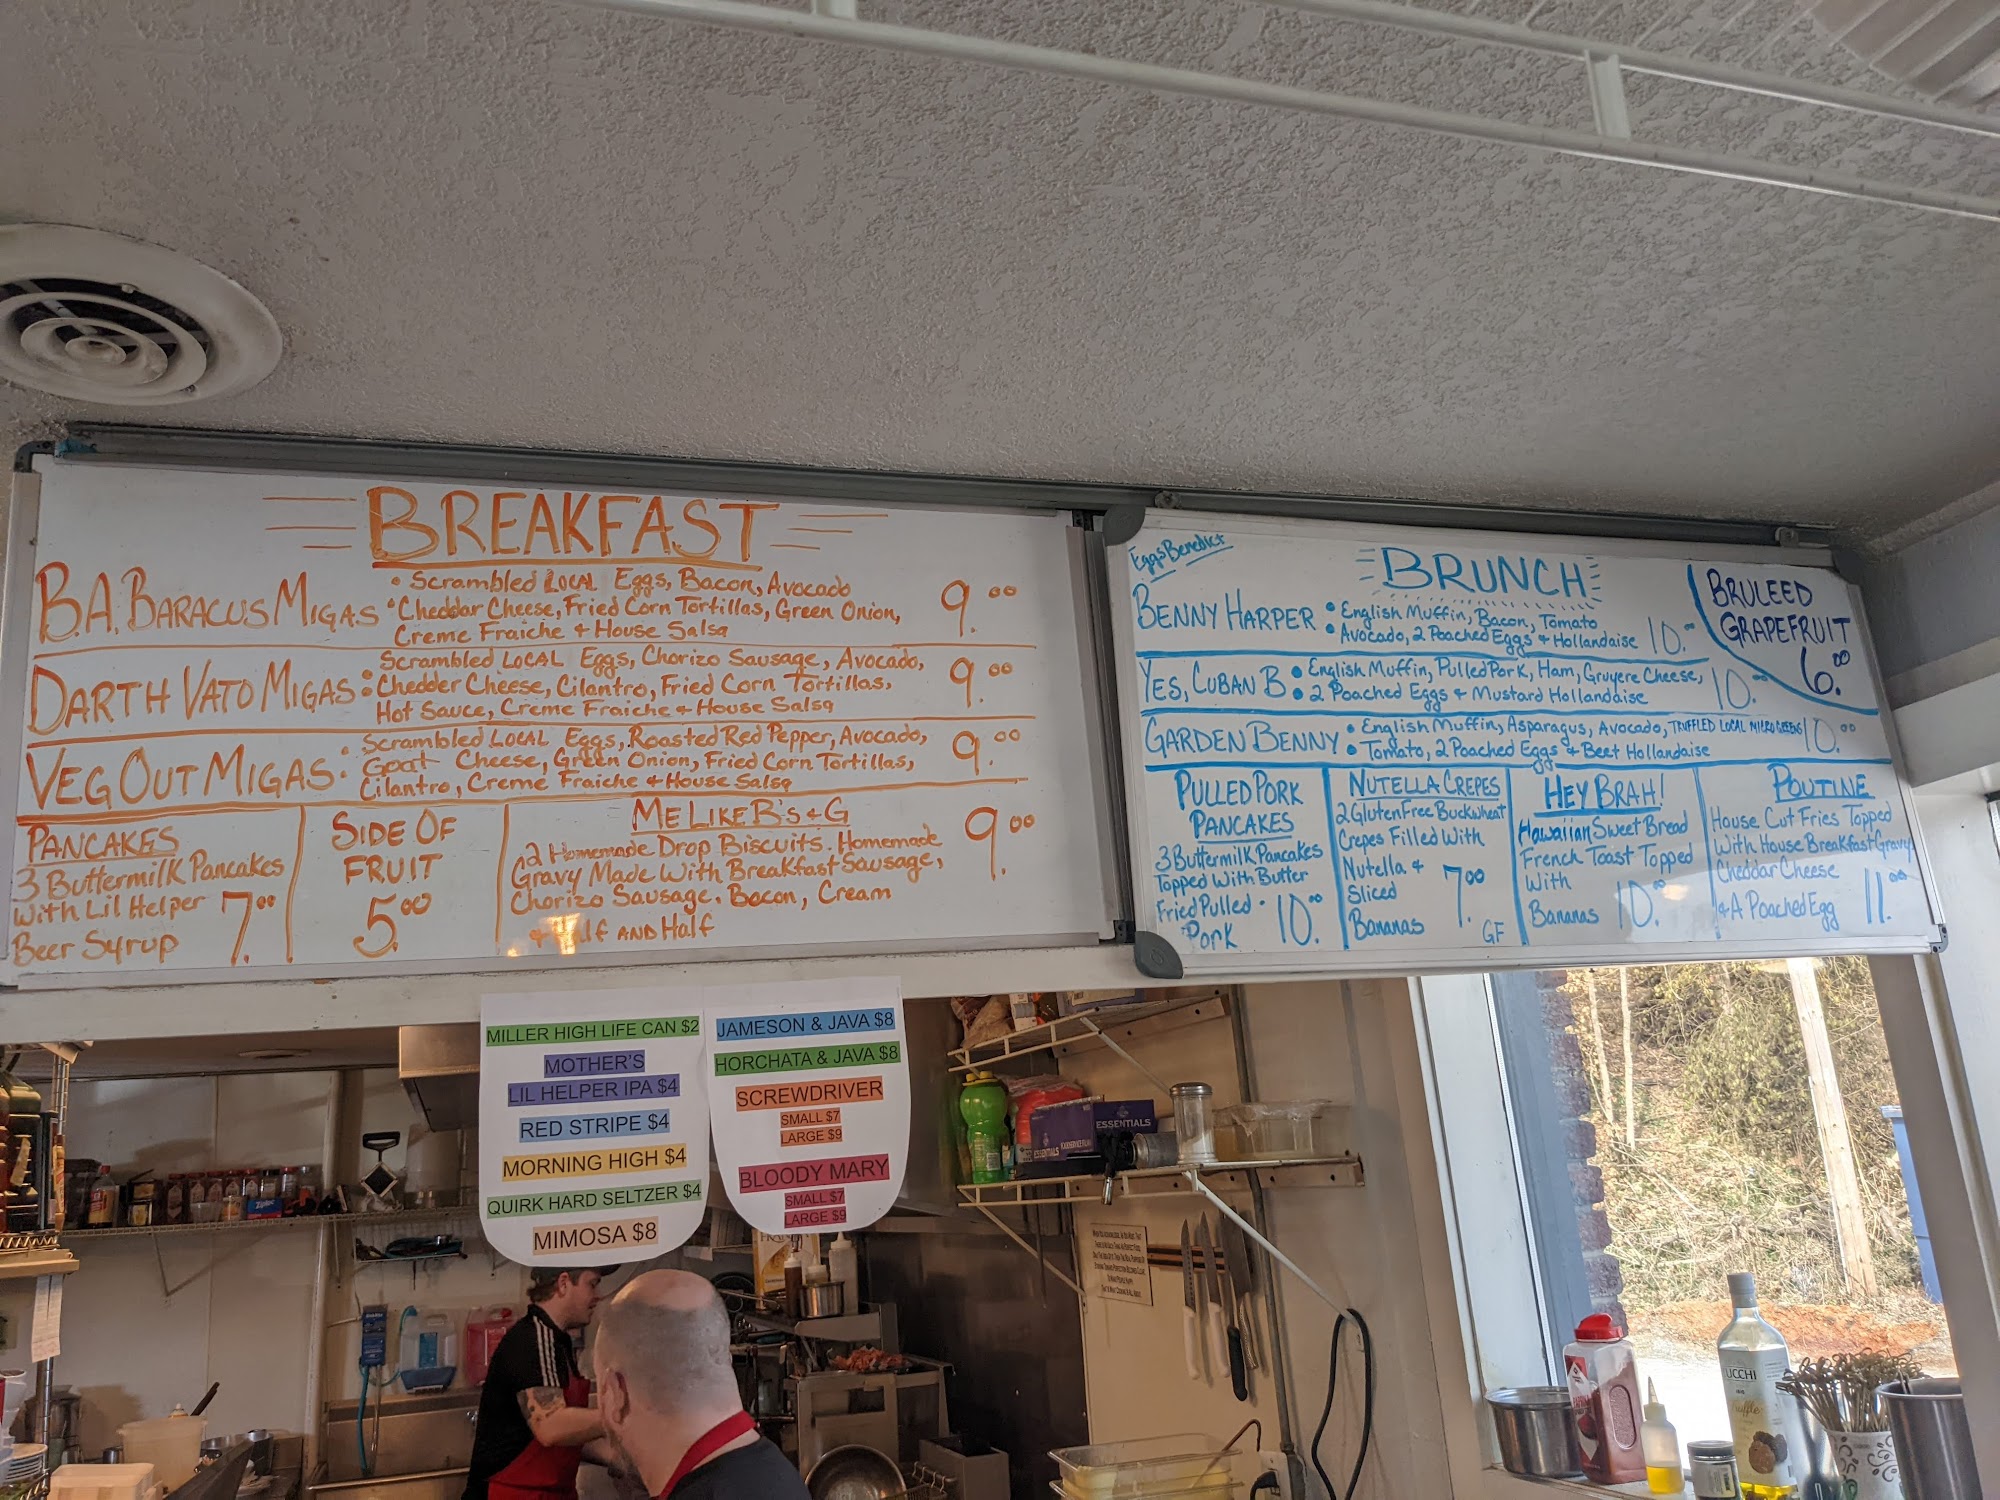 BREAKFAST
B.A. BARACUS MIGAS
• Scrambled LOCAL Eggs, Bacon, Avocado
• Cheddar Cheese, Fried Corn Tortillas, Green Onion,
Creme Fraiche + House Salsa
9.00
DARTH VATO MIGAS
Scrambled LOCAL Eggs, Chorizo Sausage, Avocado,
Chedder Cheese, Cilantro, Fried Corn Tortillas,
Hot Sauce, Creme Fraiche + House Salsa
9.00
VEG OUT MIGAS
Scrambled LOCAL Eggs, Roasted Red Pepper, Avocado,
Goat Cheese, Green Onion, Fried Corn Tortillas,
Cilantro, Creme Fraiche + House Salsa
9.00
PANCAKES
3 Buttermilk Pancakes
With Lil Helper
Beer Syrup
7.00
SIDE OF
FRUIT
5.00
ME LIKE B's + G
2 Homemade Drop Biscuits. Homemade
Gravy Made With Breakfast Sausage,
Chorizo Sausage, Bacon, Cream
+ Half AND Half
9.00
Eggs Benedict
BRUNCH
BENNY HARPER
• English Muffin, Bacon, Tomato
• Avocado, 2 Poached Eggs + Hollandaise
10.00
YES, CUBAN B
• English Muffin, Pulled Pork, Ham, Gruyere Cheese,
• 2 Poached Eggs + Mustard Hollandaise
10.00
GARDEN BENNY
• English Muffin, Asparagus, Avocado, TRUFFLED LOCAL MICROGREENS
• Tomato, 2 Poached Eggs + Beet Hollandaise
10.00
BRULEED
GRAPEFRUIT
6.00
PULLED PORK
PANCAKES
3 Buttermilk Pancakes
Topped With Butter
Fried Pulled
Pork
10.00
NUTELLA CREPES
2 Gluten Free Buckwheat
Crepes Filled With
Nutella +
Sliced
Bananas
7.00
GF
HEY BRAH!
Hawaiian Sweet Bread
French Toast Topped
With
Bananas
10.00
POUTINE
House Cut Fries Topped
With House Breakfast Gravy
Cheddar Cheese
+ A Poached Egg
11.00
MILLER HIGH LIFE CAN $2
MOTHER'S
LIL HELPER IPA $4
RED STRIPE $4
MORNING HIGH $4
QUIRK HARD SELTZER $4
MIMOSA $8
JAMESON & JAVA $8
HORCHATA & JAVA $8
SCREWDRIVER
SMALL $7
LARGE $9
BLOODY MARY
SMALL $7
LARGE $9
ESSENTIALS
ESSENTIALS
UCCHI